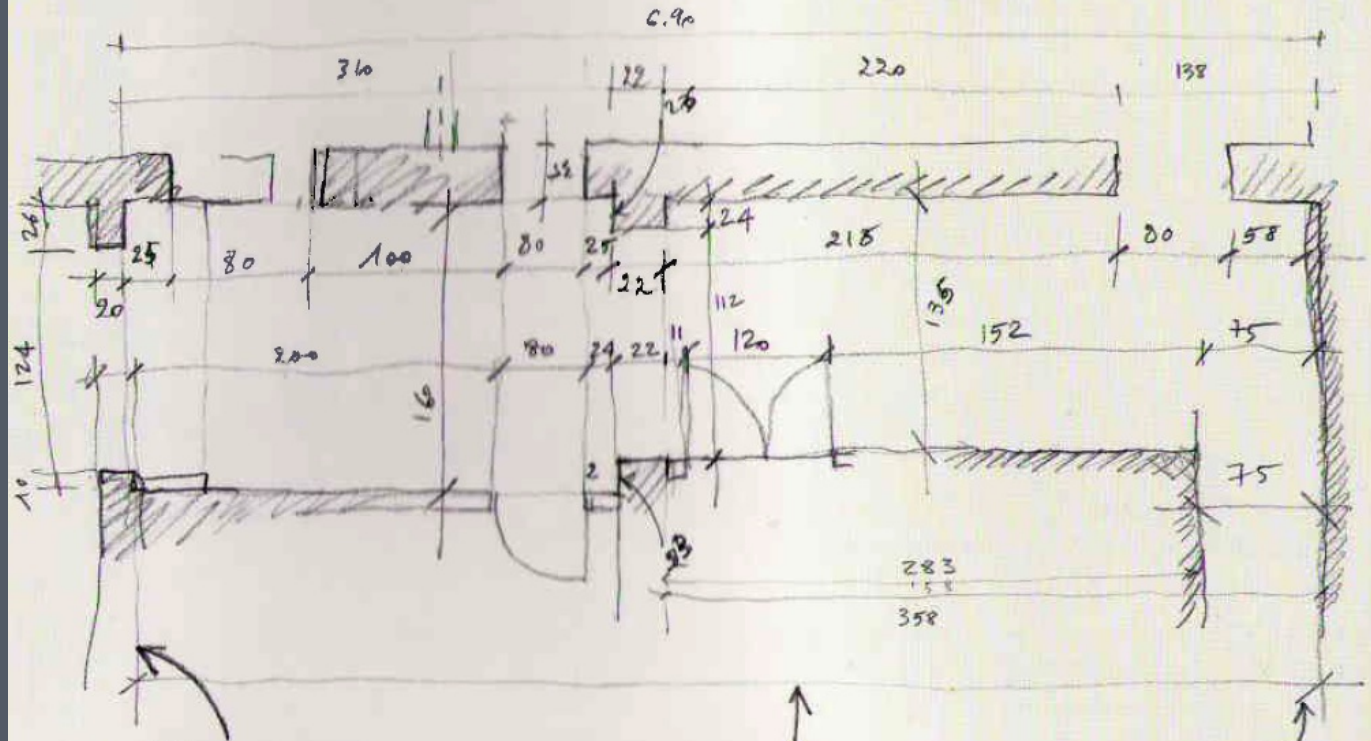 6.90
310
22
220
138
26
24
26
25
80
100
80
25
22
215
80
58
20
112
135
124
200
80
24
22
11
120
152
75
16
10
2
75
283
158
358